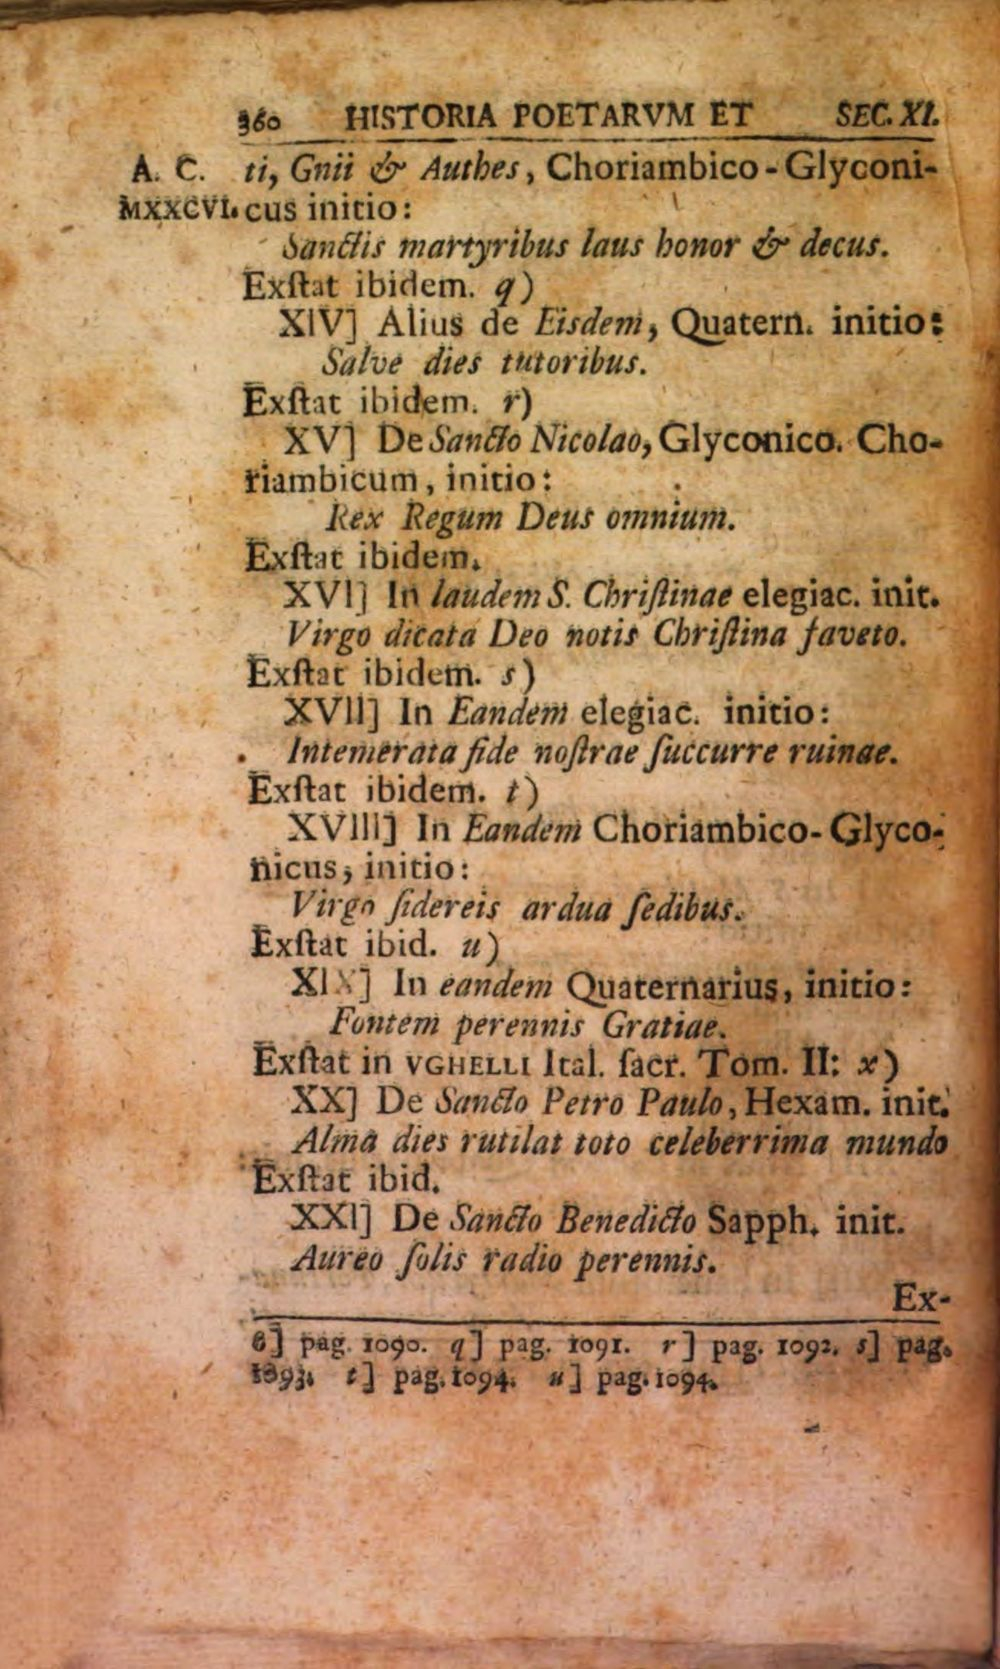 360 HISTORIA POETARVM ET SEC. XI.
A. C. ti, Gnii & Authes, Choriambico-Glyconi-
MXXCVI. cus initio:
Sanctis martyribus laus honor & decus.
Exſtat ibidem. q)
XIV] Alius de Eisdem, Quatern. initio:
Salve dies tutoribus.
Exſtat ibidem. r)
XV] De Sancto Nicolao, Glyconico. Cho-
riambicum, initio:
Rex Regum Deus omnium.
Exſtat ibidem.
XVI] In laudem S. Chriſtinae elegiac. init.
Virgo dicata Deo notis Chriſtina faveto.
Exſtat ibidem. s)
XVII] In Eandem elegiac. initio:
Intemerata fide noſtrae ſuccurre ruinae.
Exſtat ibidem. t)
XVIII] In Eandem Choriambico-Glyco-
nicus, initio:
Virgo ſidereis ardua ſedibus.
Exſtat ibid. u)
XIX] In eandem Quaternarius, initio:
Fontem perennis Gratiae.
Exſtat in VGHELLI Ital. ſacr. Tom. II: x)
XX] De Sancto Petro Paulo, Hexam. init.
Alma dies rutilat toto celeberrima mundo
Exſtat ibid.
XXI] De Sancto Benedicto Sapph. init.
Aureo ſolis radio perennis.
Ex-
] pag. 1090. q] pag. 1091. r] pag. 1092. s] pag.
1093. t] pag. 1094. u] pag. 1094.